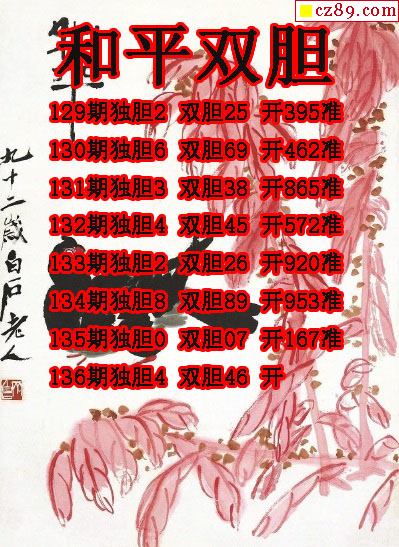 cz89.com
和平双胆
129期独胆2 双胆25 开395准
130期独胆6 双胆69 开462准
131期独胆3 双胆38 开865准
132期独胆4 双胆45 开572准
133期独胆2 双胆26 开920准
134期独胆8 双胆89 开953准
135期独胆0 双胆07 开167准
136期独胆4 双胆46 开
九十二岁白石老人